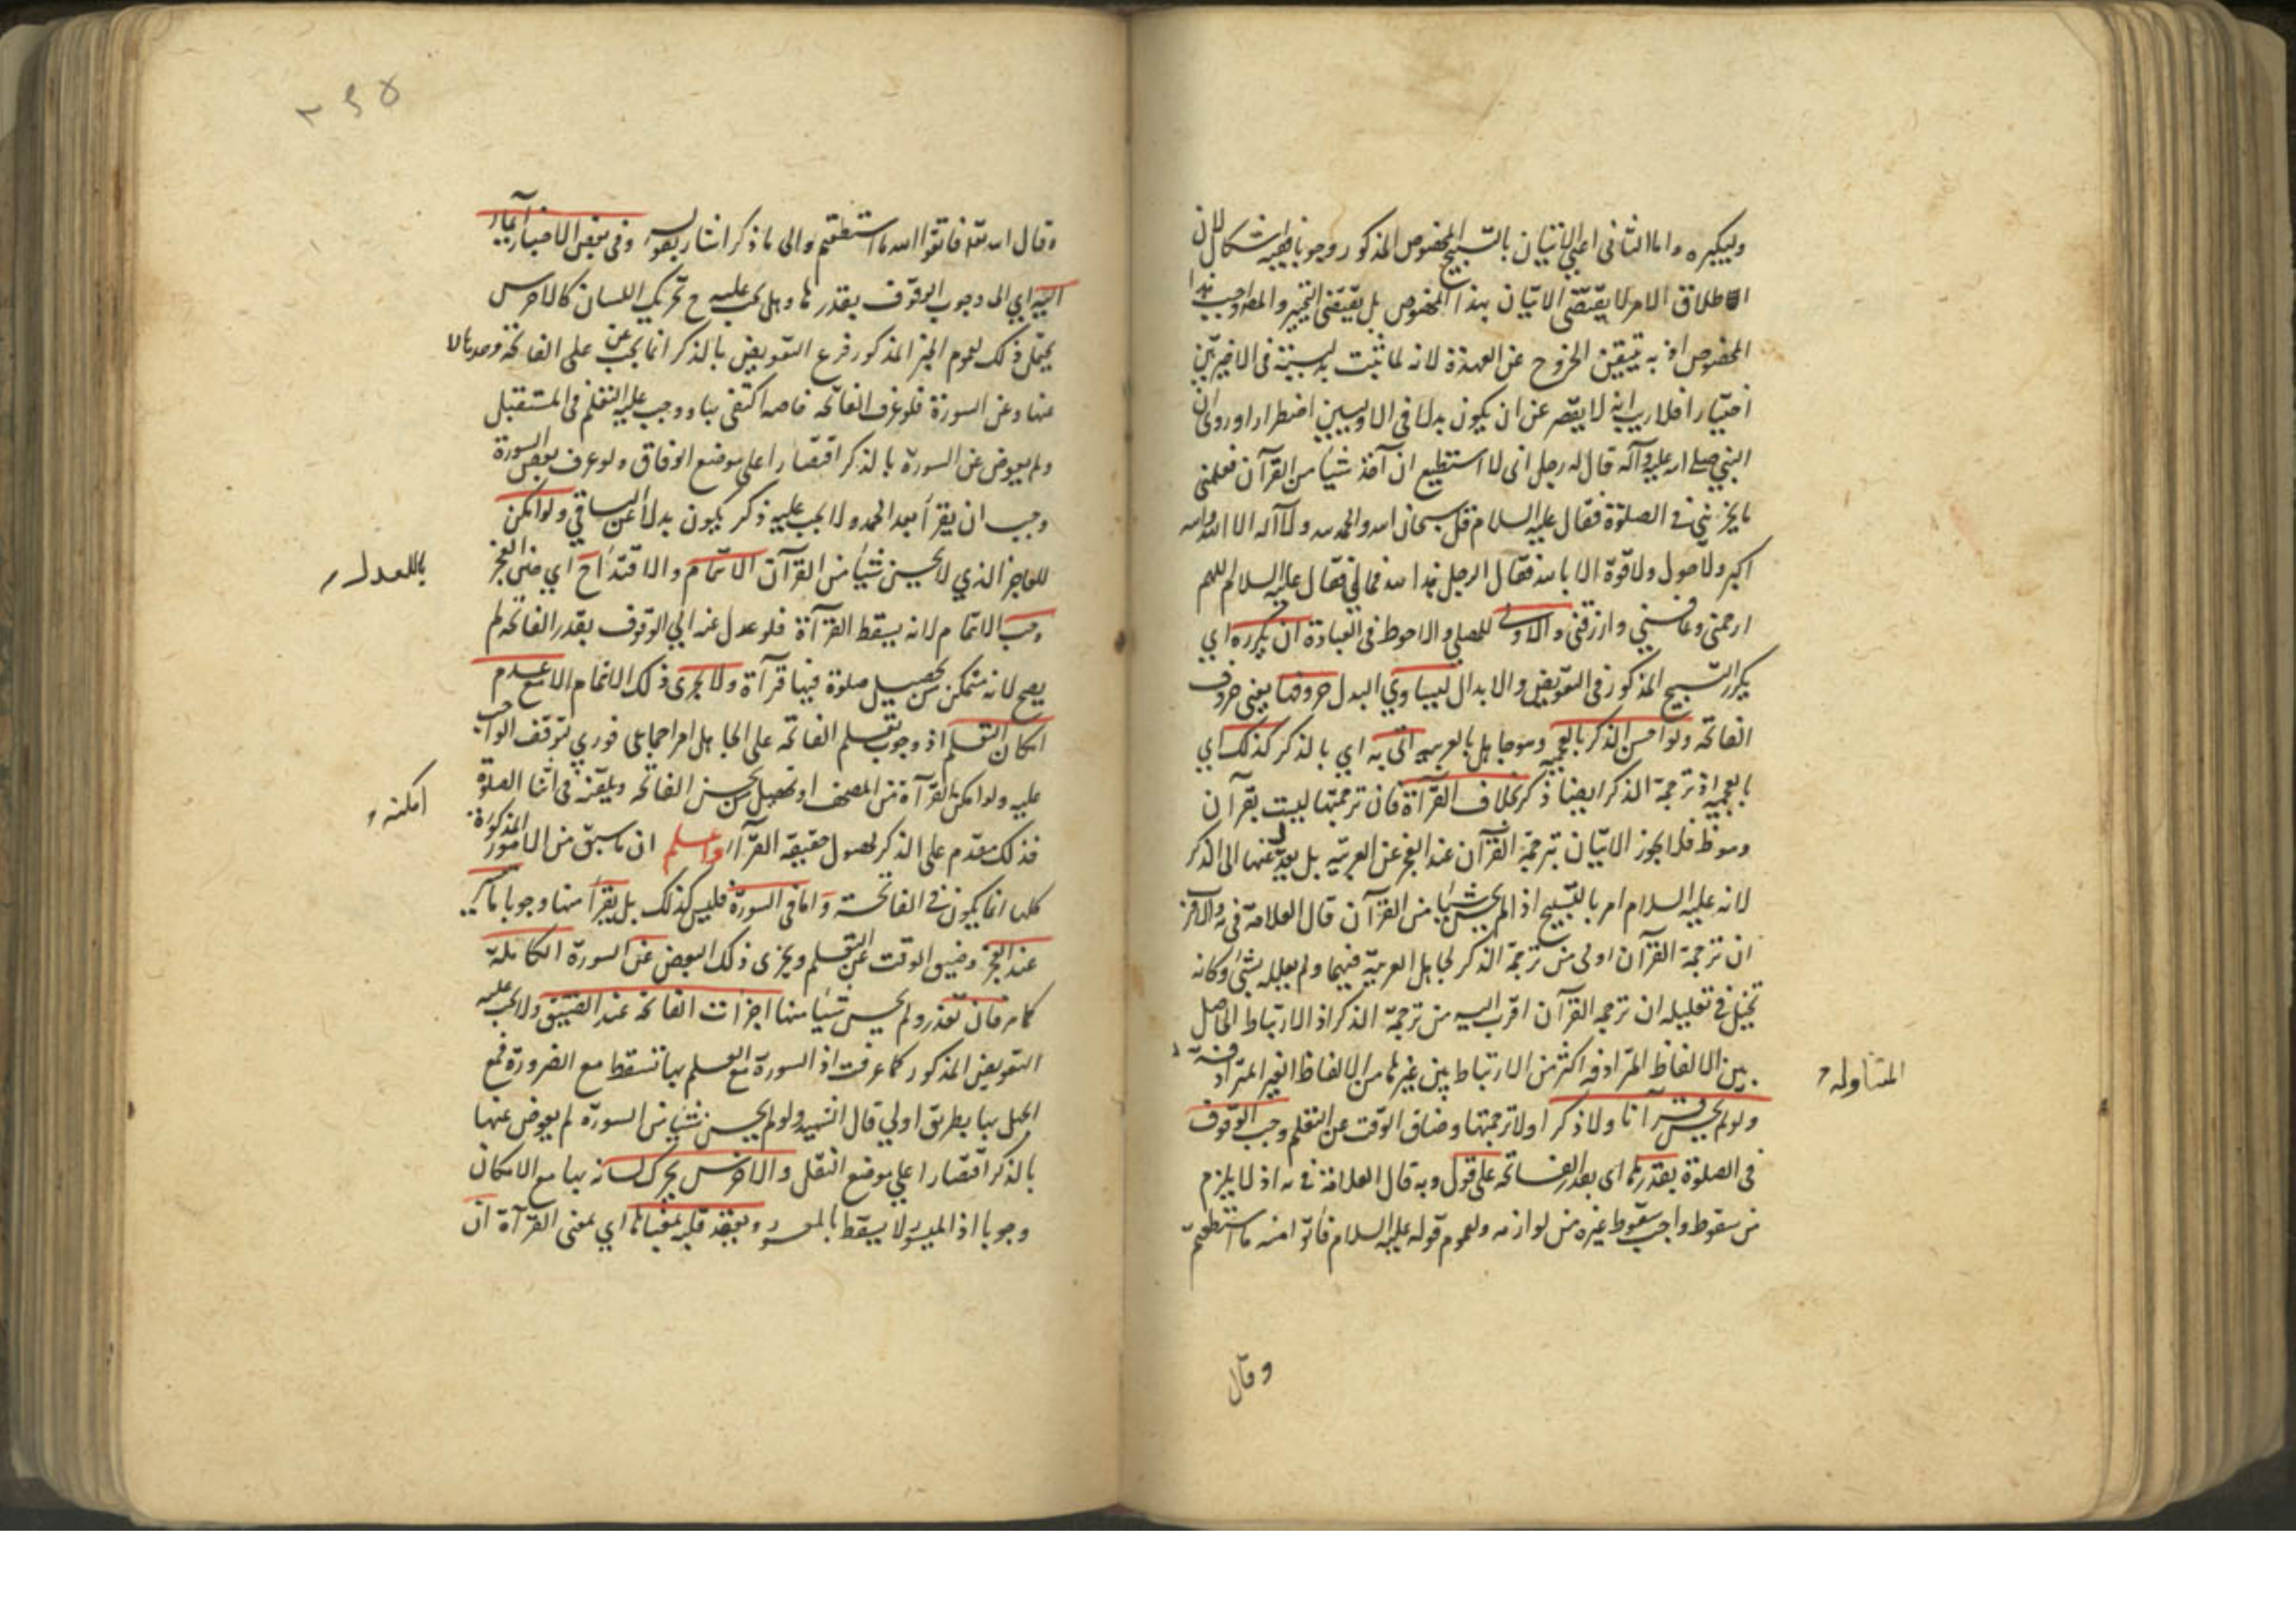 وليكبره واما الثاني اعني الاتيان بالتسبيح المخصوص المذكور وجوبا ففيه اشكال لان
اطلاق الامر لا يقتضي الاتيان بهذا المخصوص بل يقتضي التخيير والمص اوجب هذا
المخصوص اذ به يتيقن الخروج عن العهدة لانه لما ثبت بدليته في الاخيرتين
اختيارا فلا ريب انه لا يقصر عن ان يكون بدلا في الاوليين اضطرارا وروى ان
النبي صلى الله عليه وآله قال له رجل اني لا استطيع ان آخذ شيئا من القرآن فعلمني
ما يجزئني في الصلوة فقال عليه السلام قل سبحان الله والحمد لله ولا اله الا الله والله
اكبر ولا حول ولا قوة الا بالله فقال الرجل هذا لله فما لي فقال عليه السلام قل اللهم
ارحمني وعافني وارزقني والاولى للمصلي والاحوط في العبادة ان يكرره اي
يكرر التسبيح المذكور في التعويض والابدال ليساوي البدل حروفها يعني حروف
الفاتحة ولو احسن الذكر بالعجمية وهو جاهل بالعربية اتى به اي بالذكر كذلك اي
بالعجمية اذ ترجمة الذكر ايضا ذكر بخلاف القرآة فان ترجمتها ليست بقرآن
وهو ظ فلا يجوز الاتيان بترجمة القرآن عند العجز عن العربية بل يعدل عنها الى الذكر
لانه عليه السلام امر بالتسبيح اذ لم يحسن شيئا من القرآن قال العلامة في والاقرب
ان ترجمة القرآن اولى من ترجمة الذكر لجاهل العربية فيهما ولم يعلله بشئ وكانه
تخيل في تعليله ان ترجمة القرآن اقرب اليه من ترجمة الذكر اذ الارتباط الحاصل
بين الالفاظ المترادفه اكثر من الارتباط بين غيرها من الالفاظ الغير المترادفة
المتناوله
ولو لم يحسن قرآنا ولا ذكر اولا ترجمتها وضاق الوقت عن التعلم وجب الوقوف
في الصلوة بقدرها اى بقدر الفاتحة على قول وبه قال العلامة في يه اذ لا يلزم
من سقوط واجب سقوط غيره من لوازمه ولعموم قوله عليه السلام فاتوا منه ما استطعتم
وقال
٢٩٥
وقال الله تعه فاتقوا الله ما استطعتم والى ما ذكر اشار بقوله وفي بعض الاخبار ايماء
اليه اي الى وجوب الوقوف بقدرها وهل يجب عليه ح تحريك اللسان كالاخرس
يحتمل ذلك لعموم الخبر المذكور فرع التعويض بالذكر انما يجب عن على الفاتحة وحدها لا
عنها وعن السورة فلو عرف الفاتحة خاصه اكتفى بها ووجب عليه التعلم في المستقبل
ولم يعوض عن السورة بالذكر اقتصارا على موضع الوفاق ولو عرف بعض السورة
وجب ان يقرأ بعد الحمد ولا يجب عليه ذكر يكون بدلا عن الباقي ولو امكن
للعاجز الذي لا يحسن شيئا من القرآن الائتمام والاقتداء ح اي حين العجز
وجب الائتمام لانه يسقط القرآة فلو عدل عنه الي الوقوف بقدر الفاتحة لم
يصح لانه متمكن من تحصيل صلوة فيها قرآة ولا يجزى ذلك الائتمام الا مع عدم
امكان التعلم اذ وجوب تعلم الفاتحة على الجاهل امر اجماعي فوري لتوقف الواجب
عليه ولو امكن القرآة من المصحف او تحصيل من يحسن الفاتحة ويلقنه في اثنا الصلوة
امكنه
فذلك مقدم على الذكر لحصول حقيقة القرآة واعلم ان ما سبق من الامور المذكورة
كلها انما يكون في الفاتحة واما في السورة فليس كذلك بل يقرأ منها وجوبا ما
عند العجز وضيق الوقت عن التعلم ويجزى ذلك البعض عن السورة الكاملة
كما مر فان تعذر ولم يحسن شيئا منها اجزأت الفاتحة عند الضيق ولا يجب عليه
التعويض المذكور كما عرفت اذ السورة مع العلم بها تسقط مع الضرورة فمع
الجهل بها بطريق اولي قال الشهيد ولو لم يحسن شيئا من السورة لم يعوض عنها
بالذكر اقتصارا علي موضع النقل والاخرس يحرك لسانه بها مع الامكان
وجوبا اذ الميسور لا يسقط بالمعسور ويعقد قلبه بمعناها اي بمعنى القرآة ان